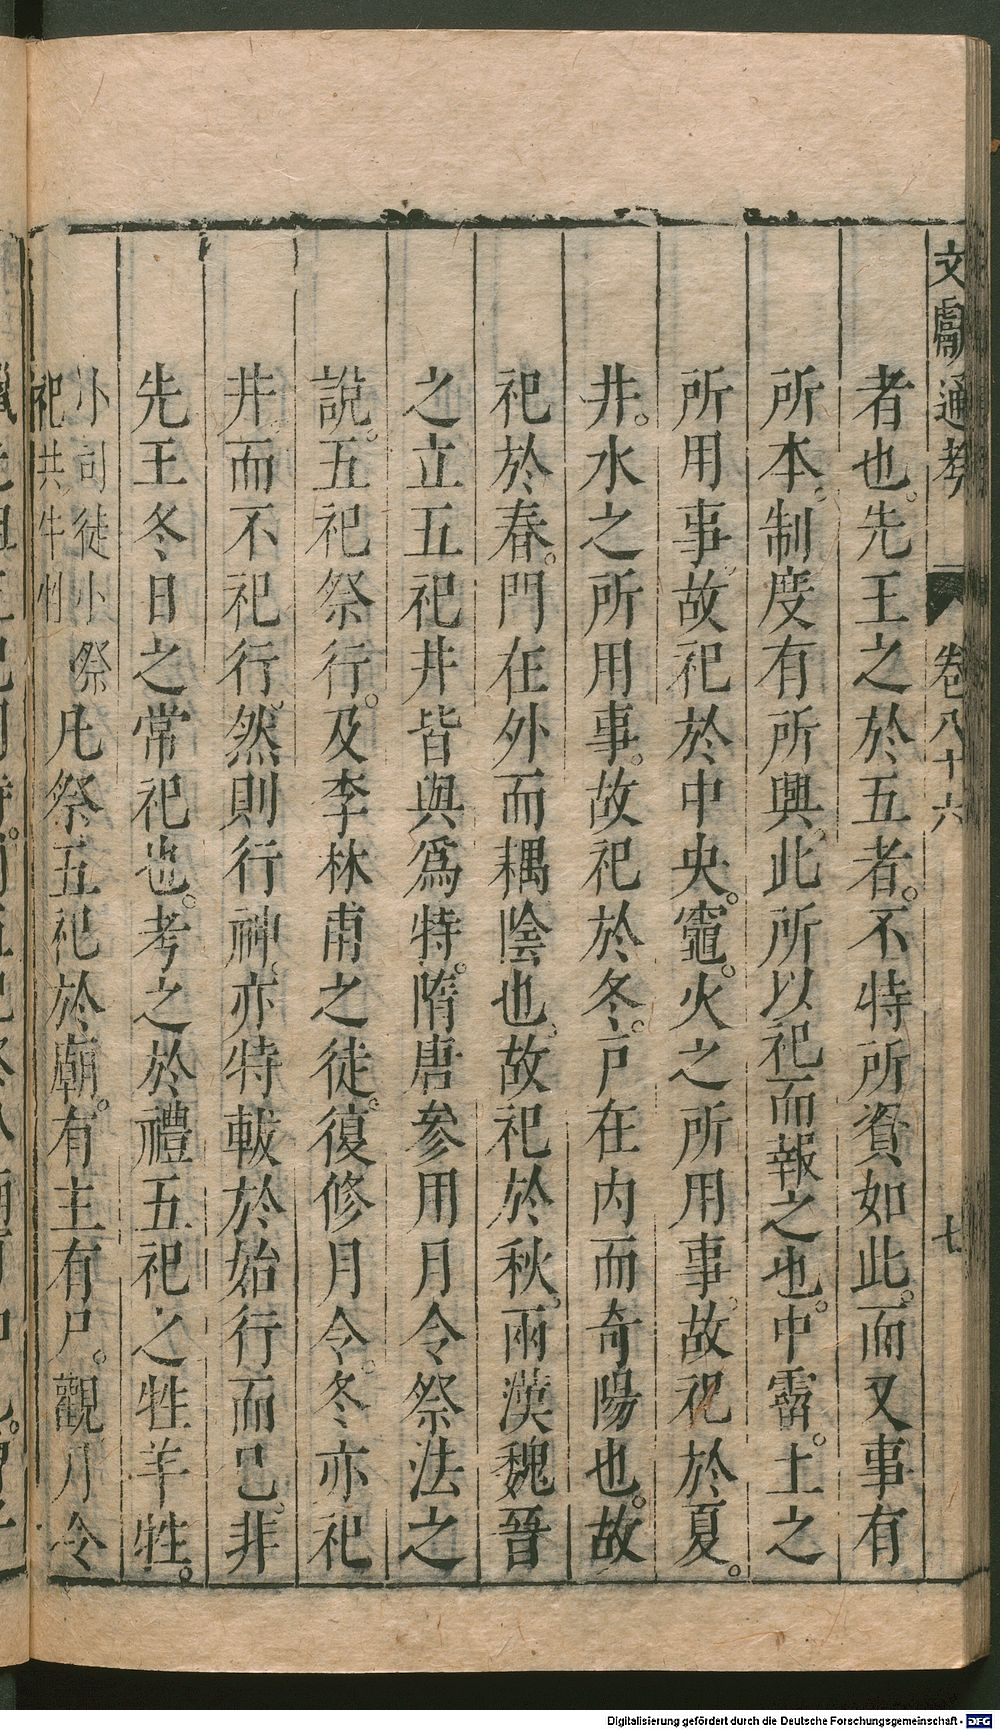 文獻通考 卷八十六 七
者也。先王之於五者。不特所資如此。而又事有
所本。制度有所興。此所以祀而報之也。中霤。土之
所用事。故祀於中央。竈。火之所用事。故祀於夏。
井。水之所用事。故祀於冬。戸在内而奇陽也。故
祀於春。門在外而耦陰也。故祀於秋。兩漢魏晉
之立五祀井皆與爲特。隋唐参用月令祭法之
說。五祀祭行。及李林甫之徒。復修月令。冬亦祀
井而不祀行。然則行神。亦特軷於始行而已。非
先王冬日之常祀也。考之於禮五祀之牲羊牲。
小司徒小祭
祀共牛牲
凡祭五祀於廟。有主有尸。觀月令
Digitalisierung gefördert durch die Deutsche Forschungsgemeinschaft - DFG